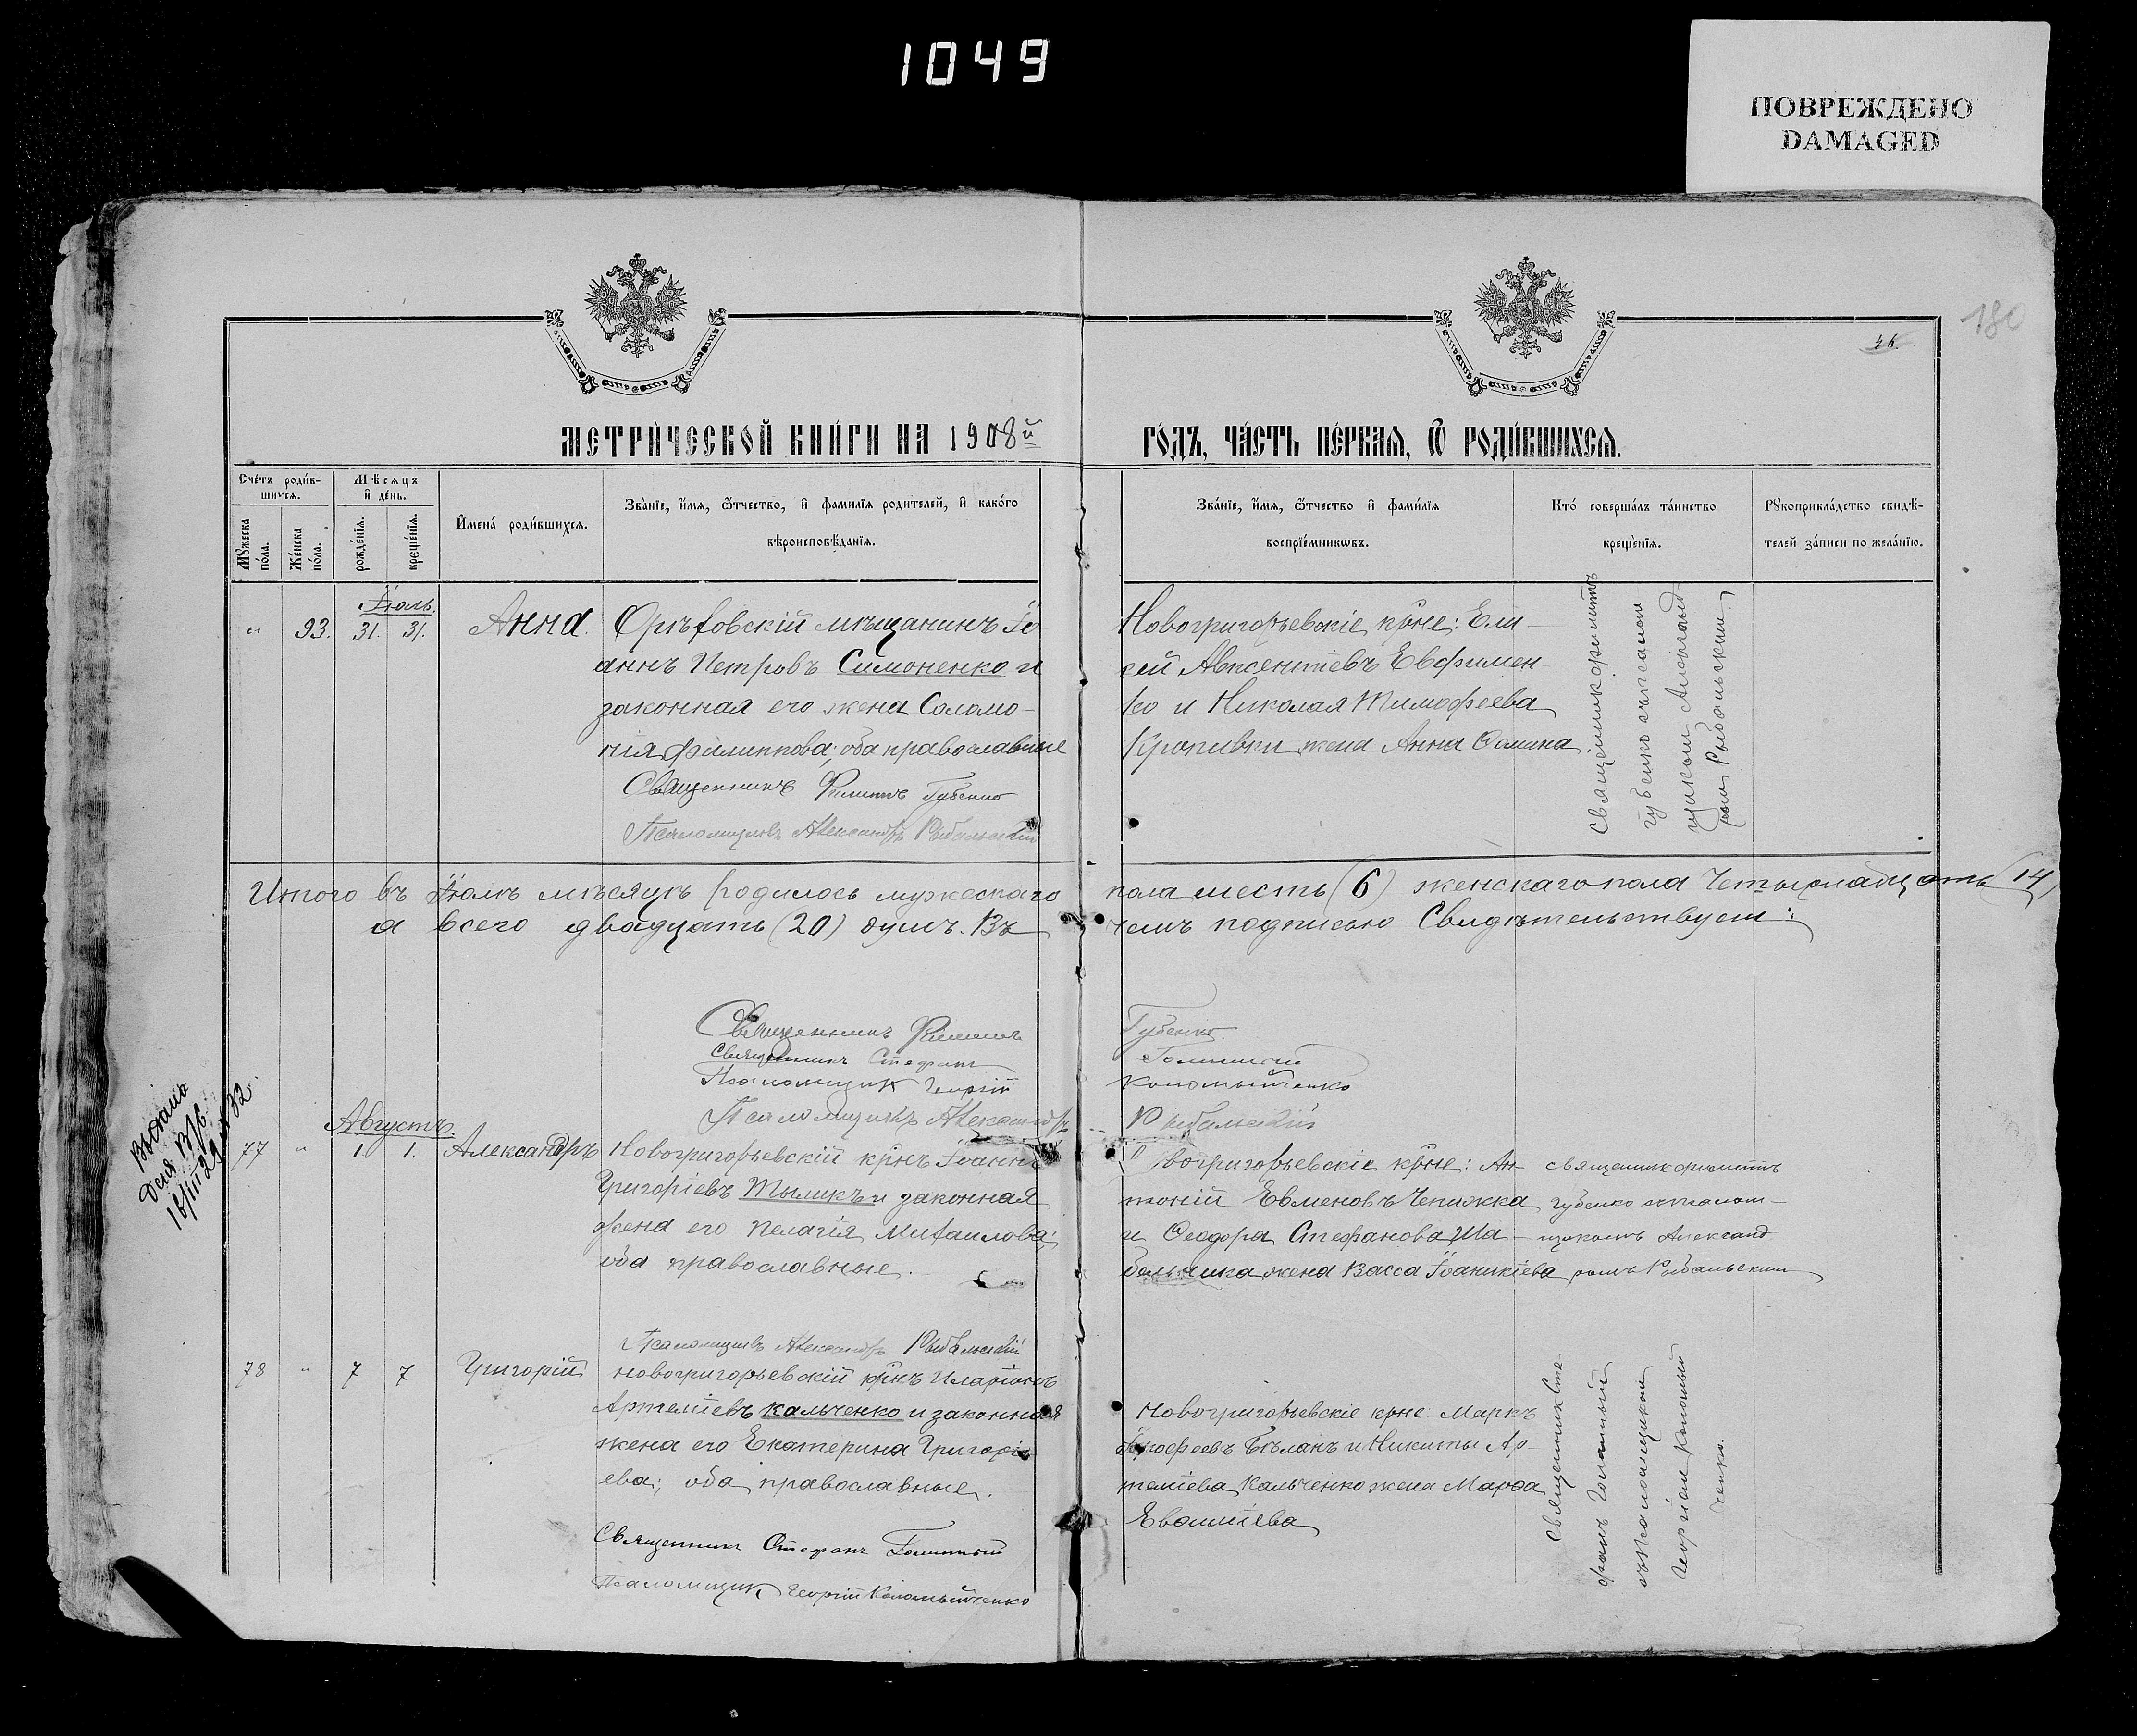 1049
ПОВРЕЖДЕНО
DAMAGED
180
МЕТРИ́ЧЕСКОЙ КНИ́ГИ НА 1908й
ГО́ДЪ, ЧА́СТЬ ПЕ́РВАЯ, Ѿ РОДИ́ВШИХСЯ.
Сче́тъ роди́в-
шихся.
Мѣсяцъ
и де́нь.
Мꙋжеска
по́ла.
Же́нска
по́ла.
рожде́нїя.
креще́нїя.
Имена́ роди́вшихся.
Зва́нїе, и́мя, ѻ́тчество, и фамилїя родителей, и како́го
вѣроисповѣ́данїя.
Зва́нїе, и́мя, ѻ́тчество и фами́лїя
воспрїе́мникѡвъ.
Кто́ соверша́лъ та́инство
креще́нїя.
Рꙋкоприкла́дство свидѣ́-
телей за́писи по жела́нїю.
Іюль.
" 93. 31. 31. Анна. Орѣховскій мѣщанинъ Іо
аннъ Петровъ Симоненко и
законная его жена Соломо-
нія Филиппова; оба православные
Священникъ Филиппъ Губенко
Псаломщикъ Александръ Рыбальскій
Новогригорьевскіе кр̃не: Ели-
сей Авксентіевъ Евфимен-
ко и Николая Тимофеева
Кропивки жена Анна
Священникъ Филиппъ
Губенко съ псалом-
щикомъ Александ
ромъ Рыбальскимъ
Итого въ Іюлѣ мѣсяцѣ родилось мужескаго пола шесть (6) женскаго пола четырнадцать (14)
а всего двадцать (20) душъ. Въ чемъ подписью свидѣтельствуем:
Священникъ Филиппъ Губенко.
Священникъ Стефанъ
Псаломщикъ Георгій Коломыйченко
Псаломщикъ Александръ Рыбальскій
Выдано
16/III 29 № 32
Августъ.
77 " 1. 1. Александръ Новогригорьевскій кр̃нъ Іоаннъ
Григоріевъ Тымикъ и законная
жена его Пелагія Михаилова;
оба православные.
вогригорьевскіе кр̃не: Ан-
тоній Евменовъ Чепижка
и Ѳеодора Стефанова Ша-
бельника жена Васса Іоаникіева
священник Филиппъ
Губенко съ псалом-
щикомъ Александ
ромъ Рыбальским
Псаломщикъ Александръ Рыбальскій
78 " 7 7 Григорій Новогригорьевскій кр̃нъ Иларіонъ
Артеміевъ Кальченко и законная
жена его Екатерина Григорі
ева; оба православные.
Священникъ Стефанъ
Псаломщик Георгій Коломыйченко
Новогригорьевскіе кр̃не Маркъ
Бѣланъ и Никиты Ар-
теміева Кальченко жена Марѳа
Священник Сте-
фанъ
съ псаломщиком
Георгіем Коломый
ченко.